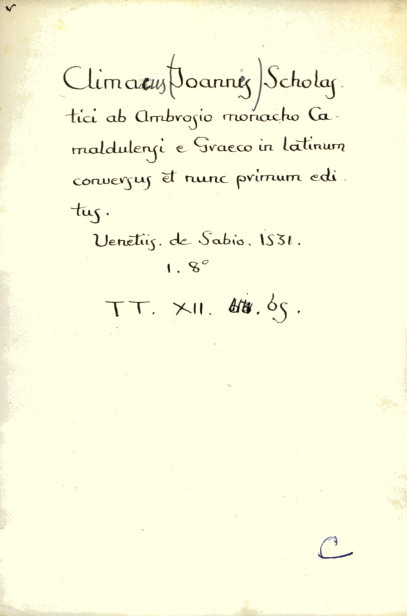 Climacus (Joannes) Scholas-
tici ab Ambrosio monacho Ca-
maldulensi e Graeco in latinum
conversus et nunc primum edi-
tus.
Venetiis. de Sabio. 1531.
1. 8°
TT. XII. 65.
C